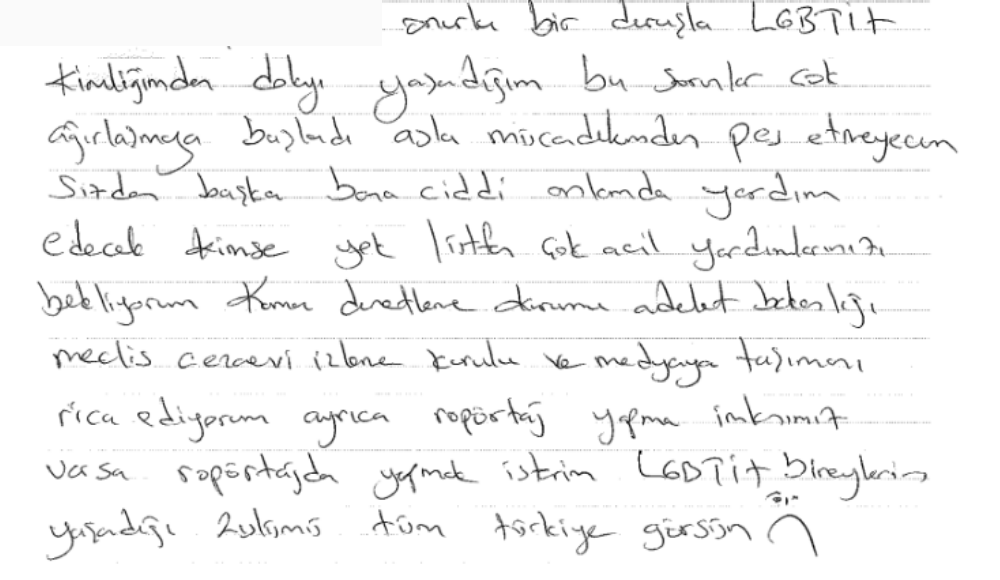 onurlu bir duruşla LGBTİ+
kimliğimden dolayı yaşadığım bu sorunlar çok
ağırlaşmaya başladı asla mücadelemden pes etmeyecem
Sizden başka bana ciddi anlamda yardım
edecek kimse yok lütfen çok acil yardımlarınızı
bekliyorum kamu denetleme kurumu adalet bakanlığı
meclis cezaevi izleme kurulu ve medyaya taşımanı
rica ediyorum ayrıca ropörtaj yapma imkanımız
varsa ropörtajda yapmak isterim LGBTİ+ bireylerin
yaşadığı zulümü tüm türkiye görsün
için